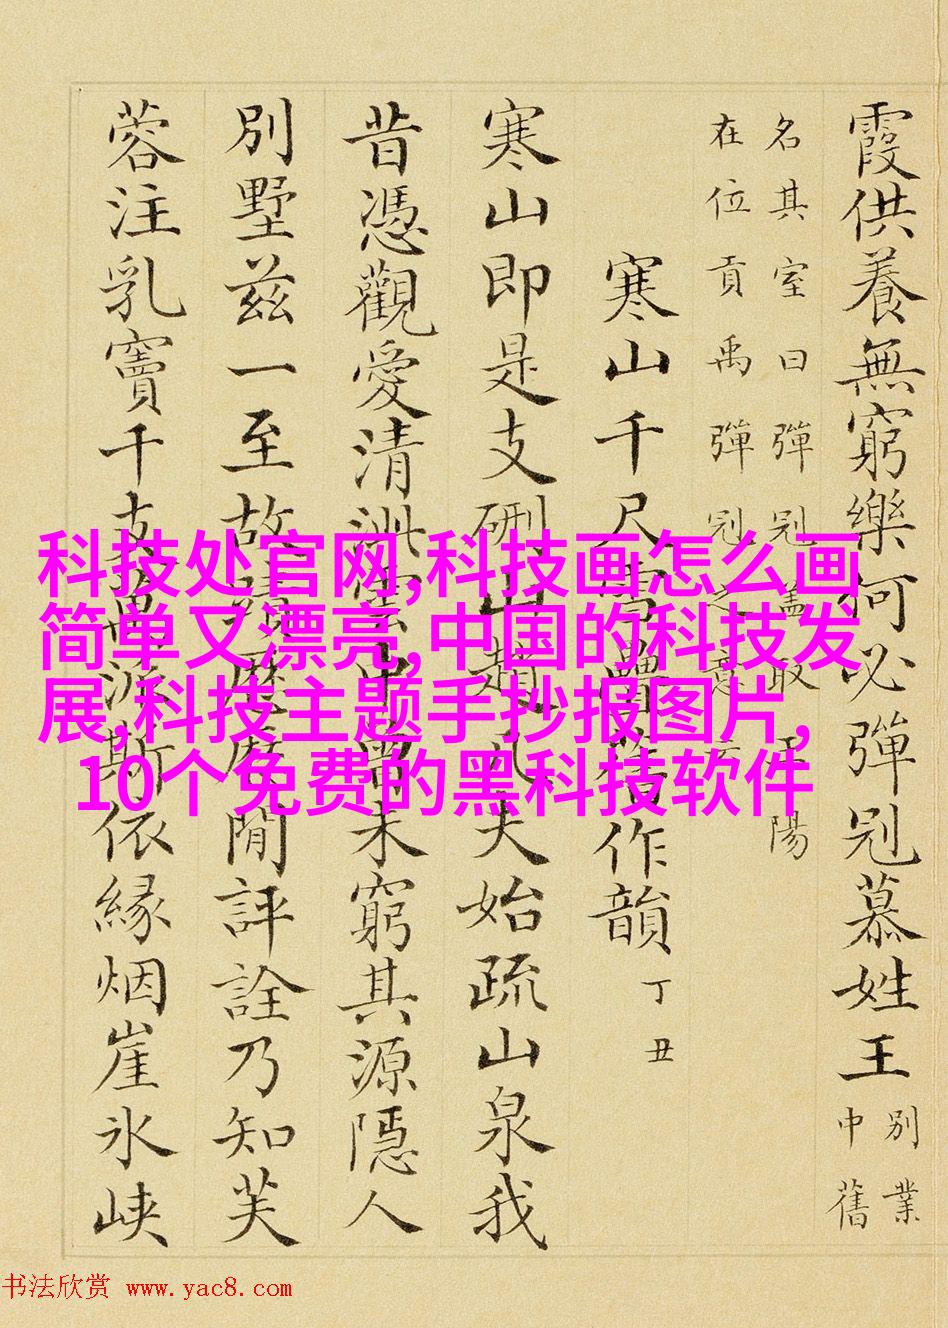 霞供養無窮樂何必彈冠慕姓王
別業
中舊
名其室曰彈冠蓋取王陽
在位貢禹彈冠之意云
寒山千尺雪疊舊作韻 丁丑
寒山即是支硎山趙凡夫始疏山泉我
昔憑觀愛清中曾未窮其源隱人
別墅兹一至故蹟歷歷閒評詮乃知芙
蓉注乳竇千支萬派斯依緣烟崖氷峽
科技处官网,科技画怎么画
简单又漂亮,中国的科技发
展,科技主题手抄报图片,
10个免费的黑科技软件
书法欣赏 www.yac8.com